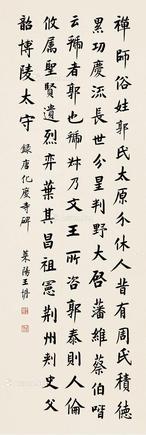 禅師俗姓郭氏太原介休人昔有周氏積德
累功慶流長世分星判野大啓藩維蔡伯喈
云虢者郭也虢叔乃文王所咨郭泰則人倫
攸属聖賢遺烈弈葉其昌祖憲荆州刺史父
韶博陵太守
録唐化度寺碑
萊陽王垿